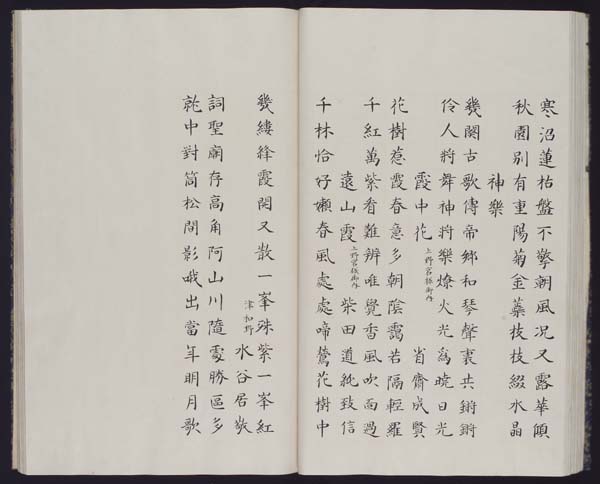 寒沼蓮枯盤不擎朝風况又露華傾
秋園别有重陽菊金蘂枝枝綴水晶
神樂
幾闋古歌傳帝鄉和琴聲裏共鏘鏘
伶人将舞神将樂燎火光為曉日光
霞中花 上野宮振御内 省齋成賢
花樹惹霞春意多朝陰靄若隔輕羅
千紅萬紫看難辨唯覺香風吹面過
遠山霞 上野宮振御内 柴田道純致信
千林恰好嬾春風處處啼鶯花樹中
幾縷絳霞閑又散一峯殊紫一峯紅
津和野 水谷居敬
詞聖廟存高角阿山川隨處勝區多
就中對筒松間影哦出當年明月歌